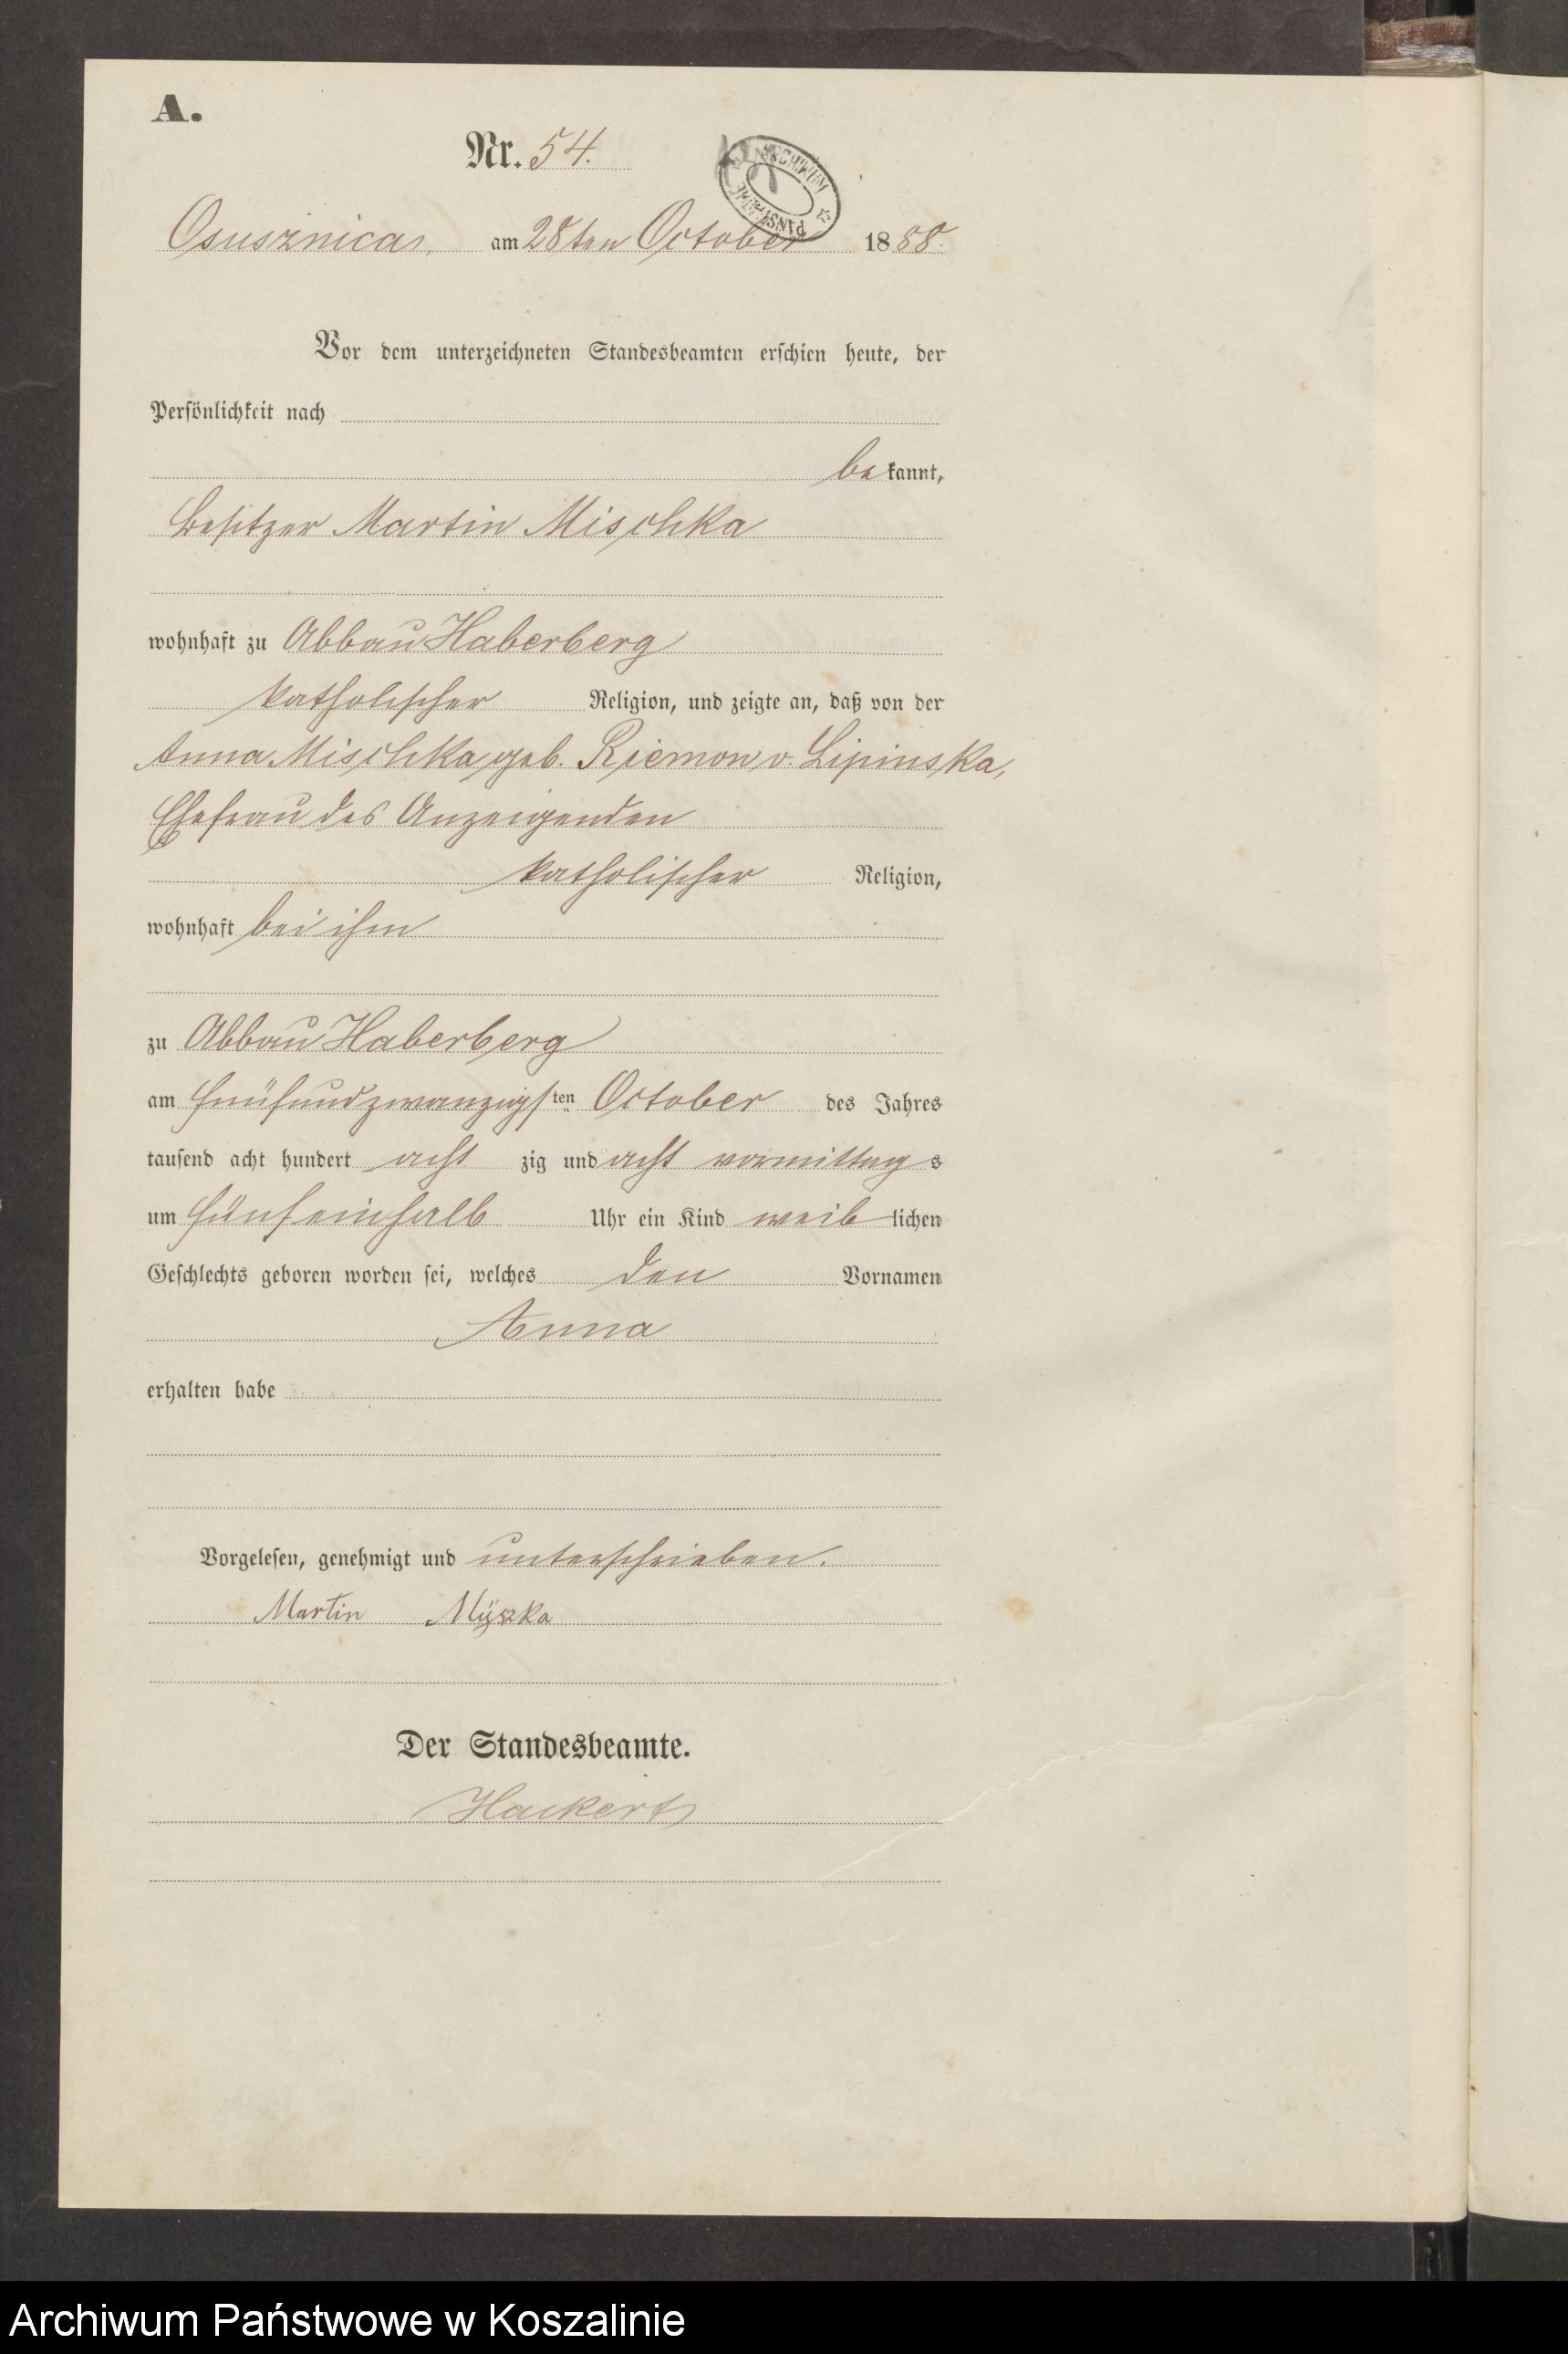 A.
Nr. 54.
Osusznica, am 28ten October 1888.
Vor dem unterzeichneten Standesbeamten erschien heute, der
Persönlichkeit nach
bekannt,
Besitzer Martin Mischka
wohnhaft zu Abbau Haberberg
katholischer Religion, und zeigte an, daß von der
Anna Mischka, geb. Riemon v. Lipinska,
Ehefrau des Anzeigenden
katholischer Religion,
wohnhaft bei ihm
zu Abbau Haberberg
am fünfundzwanzigsten October des Jahres
tausend acht hundert acht zig und acht vormittags
um fünfeinhalb Uhr ein Kind weiblichen
Geschlechts geboren worden sei, welches den Vornamen
Anna
erhalten habe
Vorgelesen, genehmigt und unterschrieben.
Martin Myszka
Der Standesbeamte.
Hackert
Archiwum Państwowe w Koszalinie